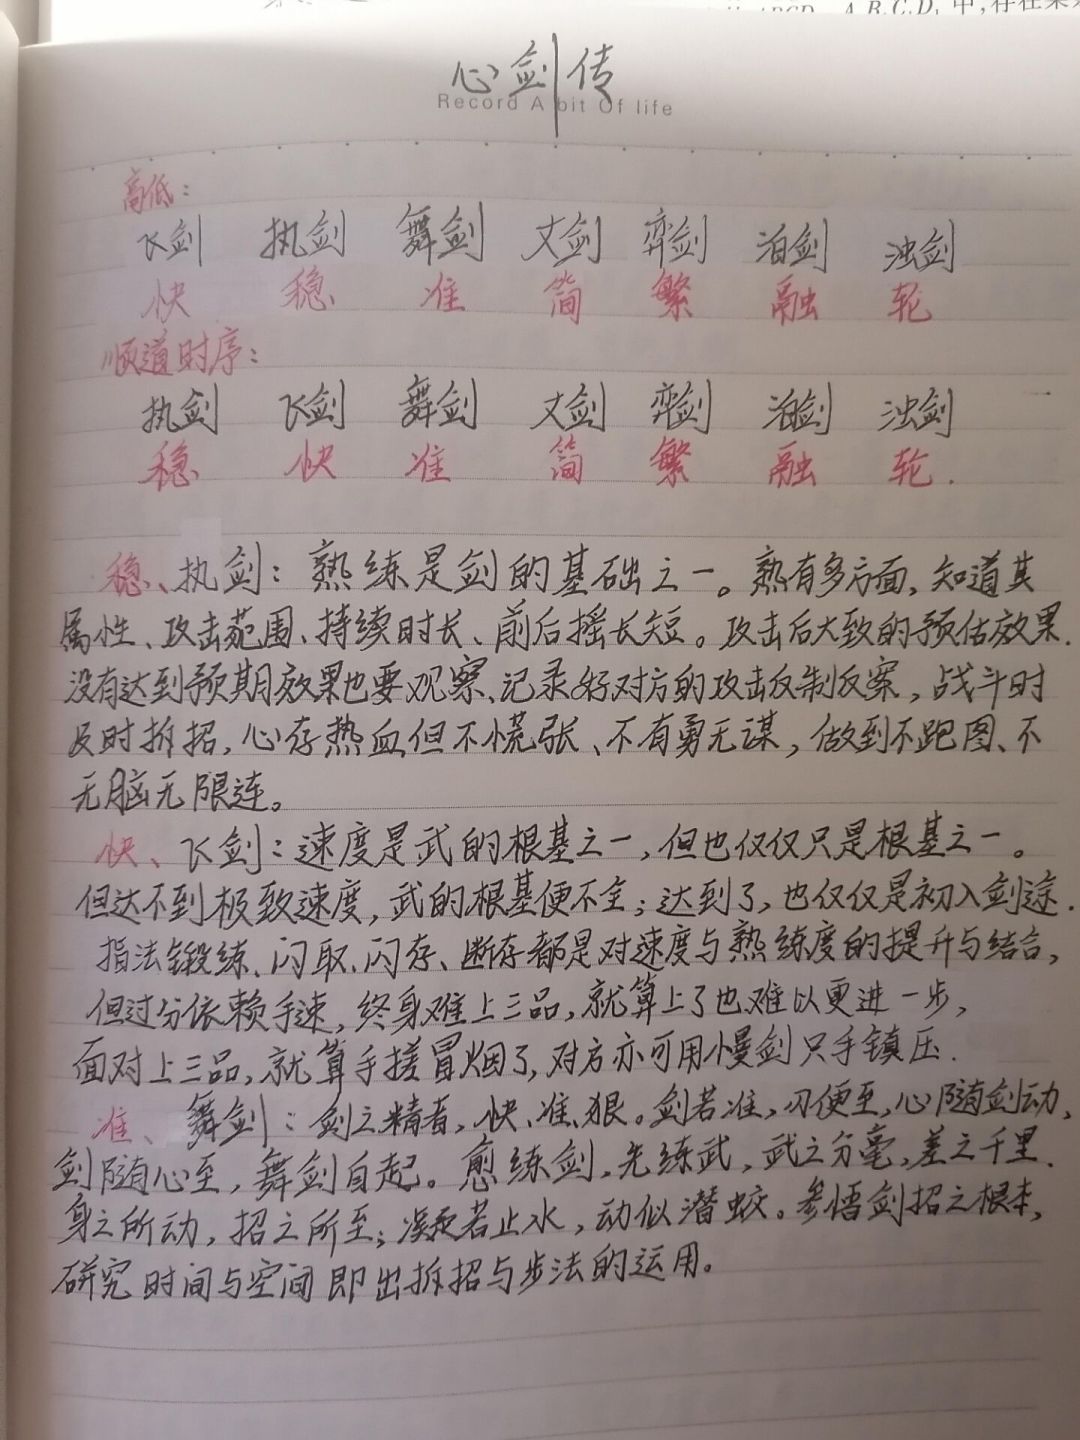 A B C D 中,存在某
心剑传
Record A bit Of life
高低:
飞剑 执剑 舞剑 丈剑 弈剑 泊剑 浊剑
快 稳 准 简 繁 融 轮
顺道时序:
执剑 飞剑 舞剑 丈剑 弈剑 泊剑 浊剑
稳 快 准 简 繁 融 轮.
稳、执剑:熟练是剑的基础之一。熟有多方面,知道其
属性、攻击范围、持续时长、前后摇长短。攻击后大致的预估效果.
没有达到预期效果也要观察、记录好对方的攻击反制反案,战斗时
及时拆招,心存热血但不慌张、不有勇无谋,做到不跑图、不
无脑无限连。
快、飞剑:速度是武的根基之一,但也仅仅只是根基之一。
但达不到极致速度,武的根基便不全;达到了,也仅仅是初入剑途.
指法锻练、闪取、闪存、断存都是对速度与熟练度的提升与结合,
但过分依赖手速,终身难上三品,就算上了也难以更进一步,
面对上三品,就算手搓冒烟了,对方亦可用慢剑只手镇压.
准、舞剑:剑之精者,快、准、狠。剑若准,刃便至,心随剑动,
剑随心至,舞剑自起。愈练剑,先练武,武之分毫,差之千里.
身之所动,招之所至;凝若止水,动似潜蛟。参悟剑招之根本,
研究时间与空间即出拆招与步法的运用。